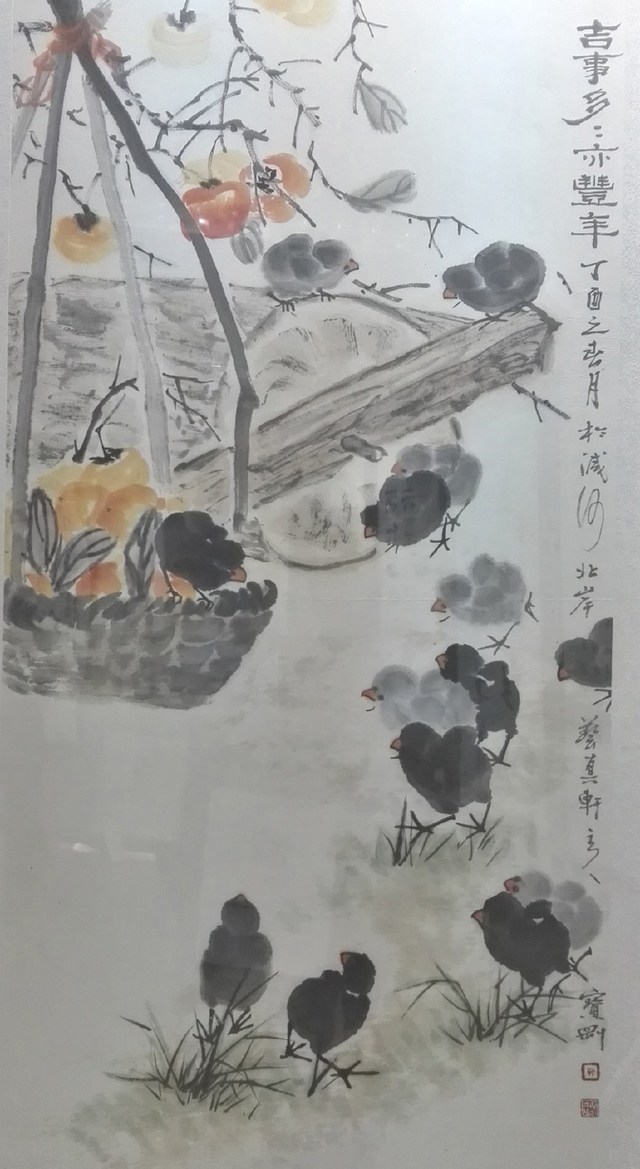 吉事多〻亦豐年 丁酉之春月於減河北岸 藝真軒主人 寶剛